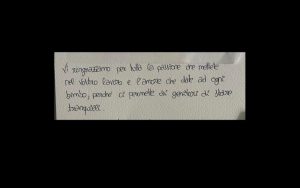 Vi ringraziamo per tutta la passione che mettete
nel vostro lavoro e l'amore che date ad ogni
bimbo, perché ci permette da genitori di stare
tranquilli.